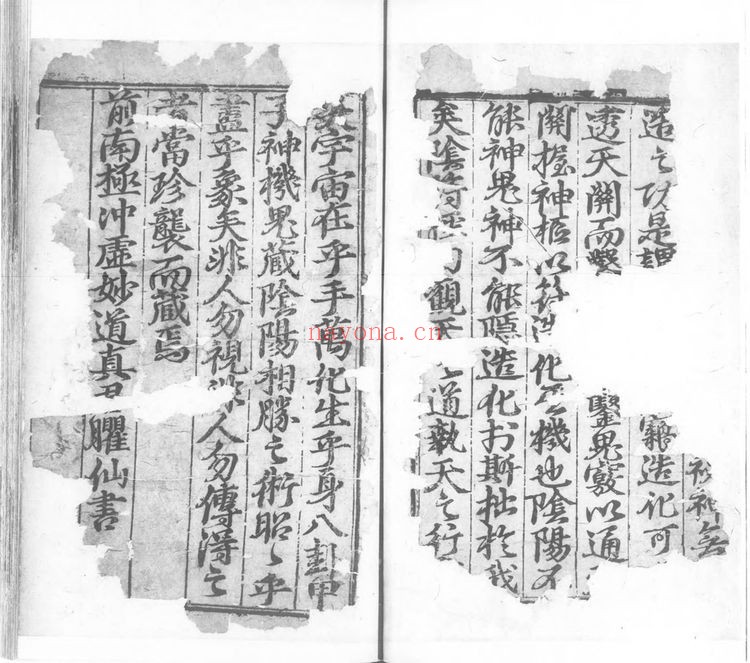 無
造之以是謂竊造化可
透天關而鑿鬼竅以通
關握神樞以造化之機也陰陽不
能神鬼神不能隱造化於斯拙於我
矣陰曰觀天之道執天之行
矣宇宙在乎手萬化生乎身八卦甲
子神機鬼藏陰陽相勝之術昭〻乎
盡乎象矣非人勿視非人勿傳得之
者當珍襲而藏焉
前南極沖虛妙道真君臞仙書
nayona.cn